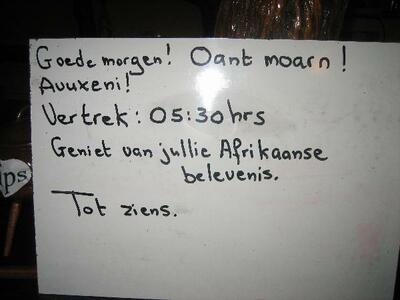 Goede morgen! Oant moarn!
Avuxeni!
Vertrek: 05:30hrs
Geniet van jullie Afrikaanse
belevenis.
Tot ziens.